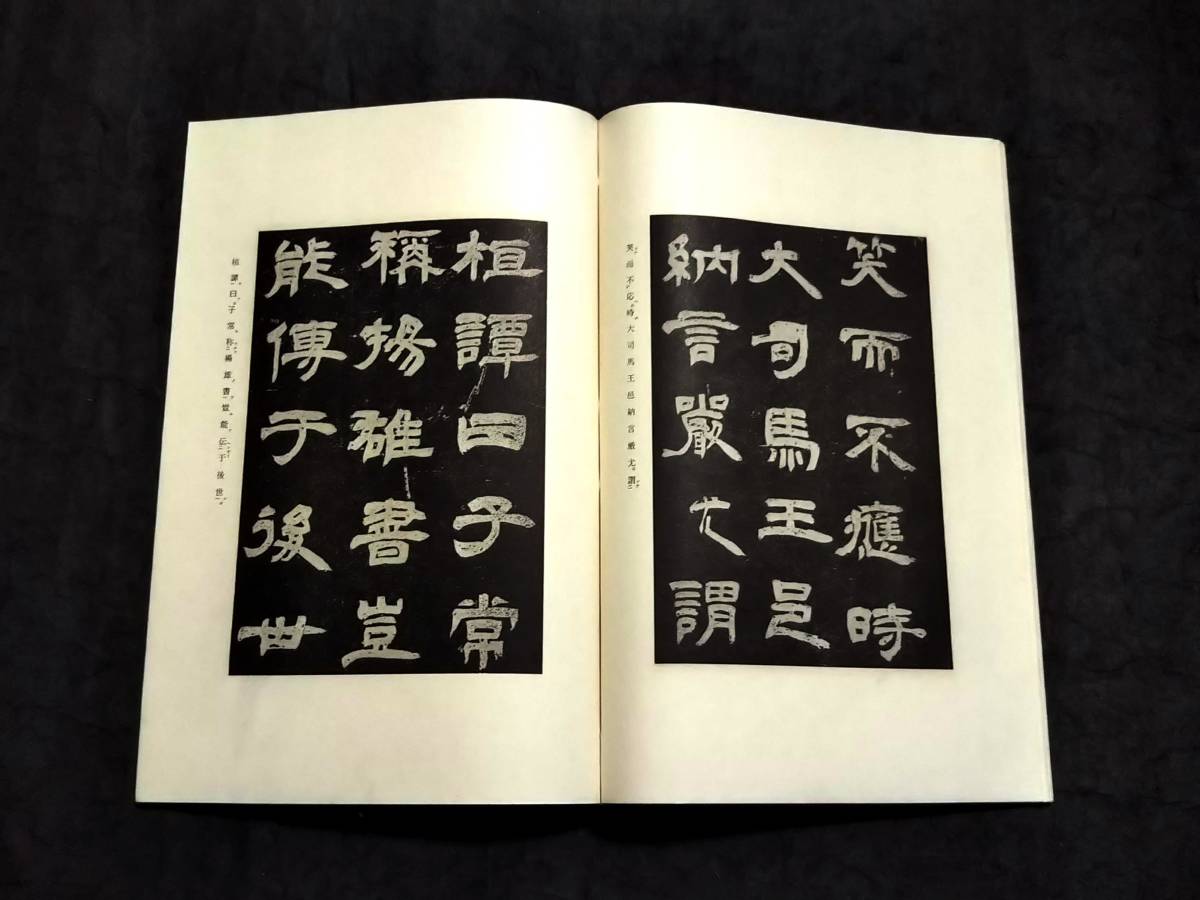 笑而不應時
大司馬王邑
納言嚴尤謂
笑而不応時大司馬王邑納言厳尤謂
桓譚曰子常
稱揚雄書豈
能傳于後世
桓譚曰子常称揚雄書豈能伝于後世